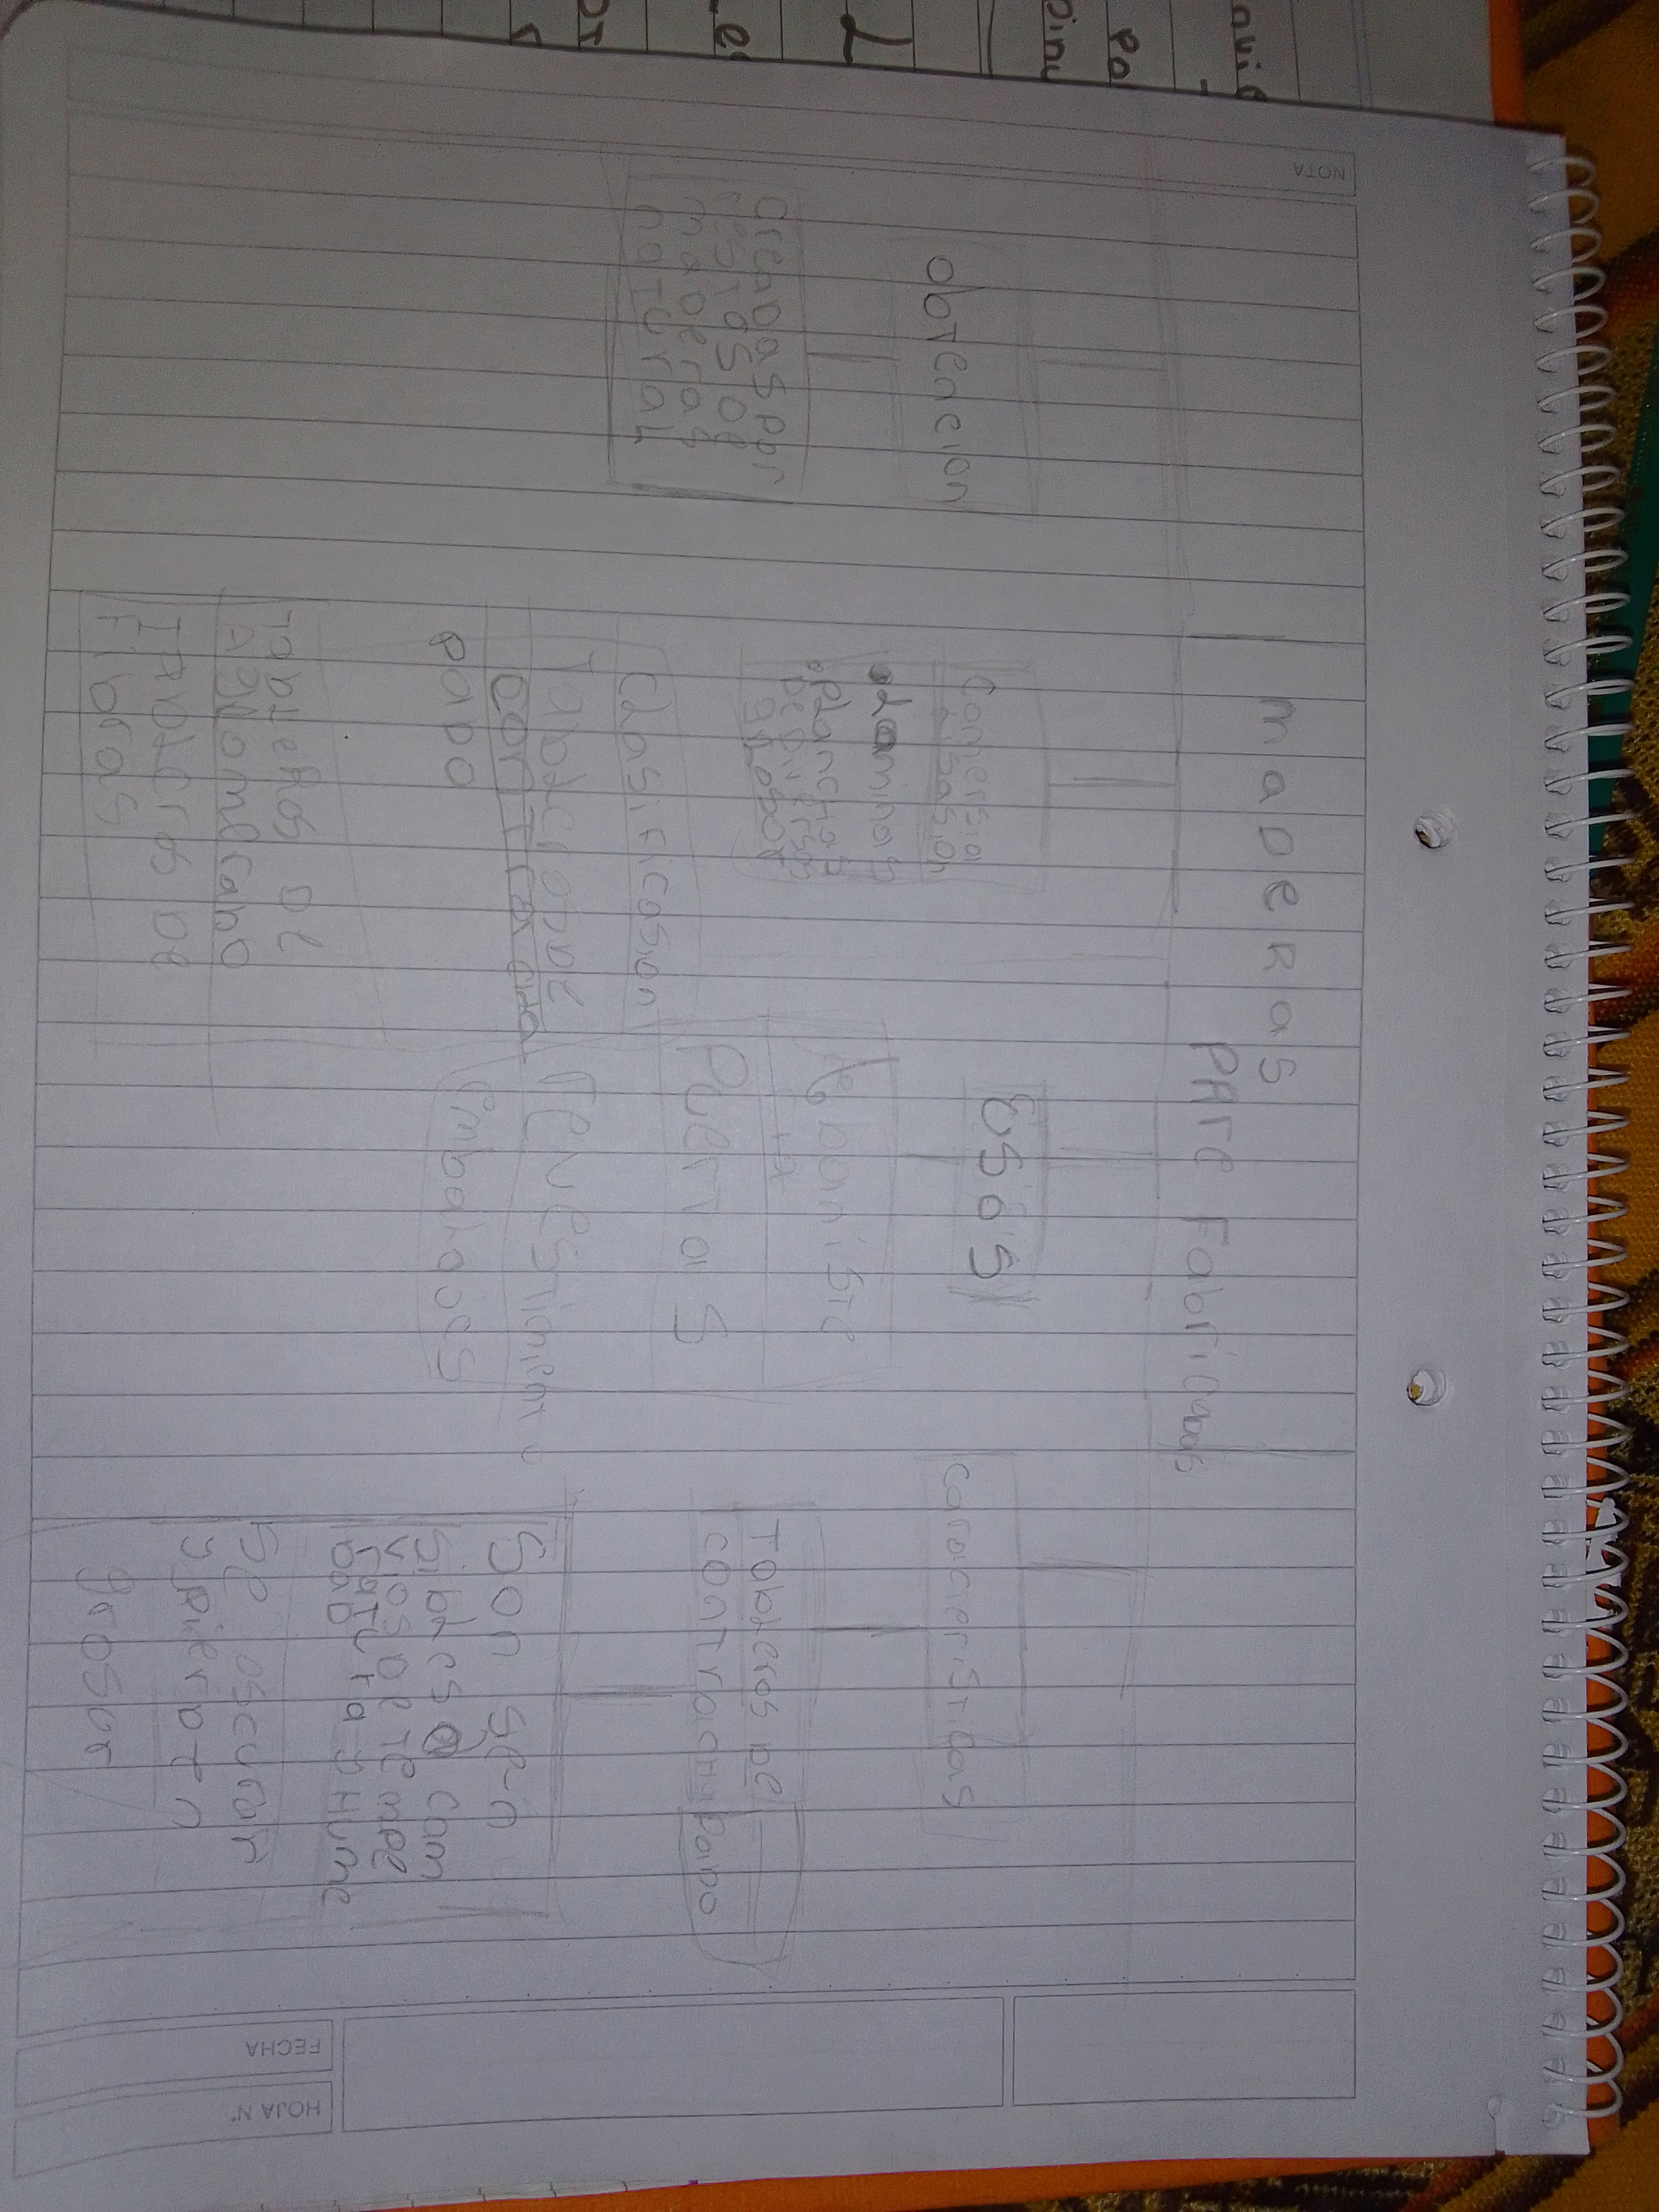 NOTA
maDeRas
PAre Fabricuas
obTencion
CreaDas por
resTasDe
maDeras
naTuraL
Comersia
Lisasion
Laminas
pLanchas
De Diverso
grosor
CLasificasion
TabLerosDe
conTrachA
paDo
TabLeRos De
AgLomeraDO
TABLeros De
Fibras
ESoS
PUerTa S
reVesTimienT
EmbaLajes
caracterisTicas
TabLeros De
conTrachapaDo
Son Sen
SibLes a cam
viosDeTempe
raTura-yHume
DaD
Se oscurar
y pierDen
grosor
FECHA
HOJA N°